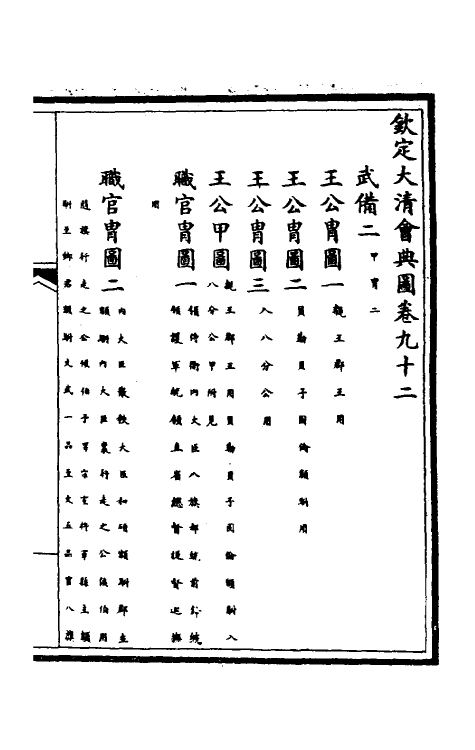 欽定大清會典圖卷九十二
武備二 甲胄二
王公胄圖一 親王郡王用
王公胄圖二 貝勒貝子固倫額駙用
王公胄圖三 入八分公用
王公甲圖 親王郡王用貝勒貝子固倫額駙入
八分公甲附見
職官胄圖一 領侍衛內大臣八旗都統前鋒統
領護軍統領直省總督提督巡撫
用
職官胄圖二 內大臣散秩大臣和碩額駙郡主
額駙內大臣裏行走之公侯伯用
行走之公侯伯子男宗室將軍縣主額
駙至鄉君額駙文武一品至文五品 八旗